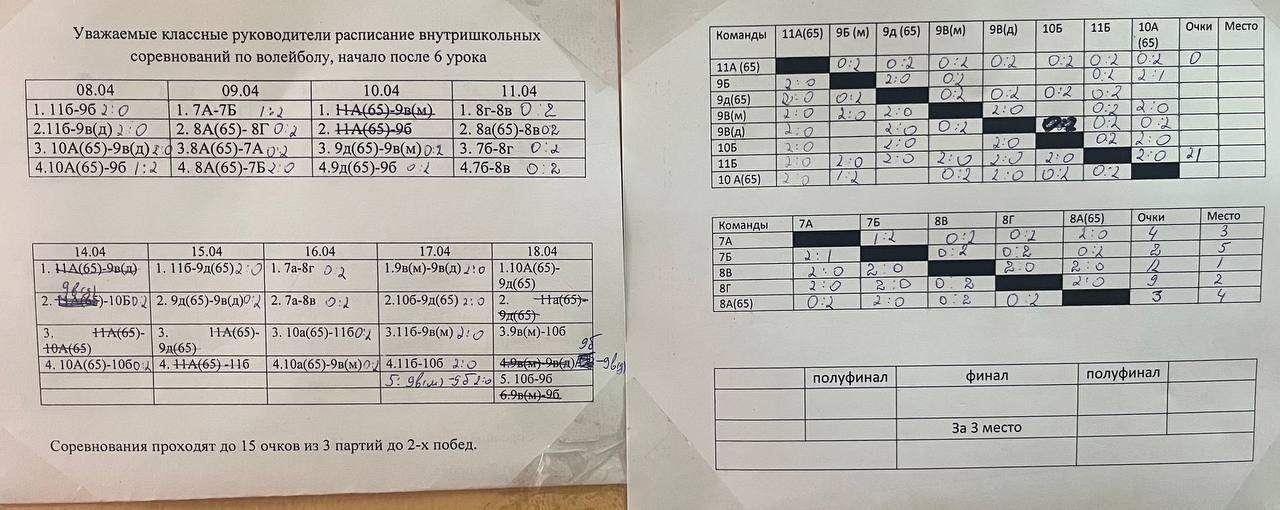 Уважаемые классные руководители расписание внутришкольных
соревнований по волейболу, начало после 6 урока
08.04 09.04 10.04 11.04
1. 11б-9б 2:0 1. 7А-7Б 1:2 1. 11А(65)-9в(м) 1. 8г-8в 0:2
2.11б-9в(д) 2:0 2. 8А(65)- 8Г 0:2 2. 11А(65)-9б 2. 8а(65)-8в 02
3. 10А(65)-9в(д) 2:0 3.8А(65)-7А 0:2 3. 9д(65)-9в(м) 0:2 3. 7б-8г 0:2
4.10А(65)-9б 1:2 4. 8А(65)-7Б 2:0 4.9д(65)-9б 0:2 4.7б-8в 0:2
14.04 15.04 16.04 17.04 18.04
1. 11А(65)-9в(д) 1. 11б-9д(65) 2:0 1. 7а-8г 0:2 1.9в(м)-9в(д) 2:0 1.10А(65)-
9д(65)
9в(д)
2. 11А(65)-10Б 0:2 2. 9д(65)-9в(д) 0:2 2. 7а-8в 0:2 2.10б-9д(65) 2:0 2. 11а(65)-
9д(65)
3. 11А(65)- 3. 11А(65)- 3. 10а(65)-11б 0:2 3.11б-9в(м) 2:0 3.9в(м)-10б
10А(65) 9д(65)
9б
4. 10А(65)-10б 0:2 4. 11А(65) -11б 4.10а(65)-9в(м) 0:2 4.11б-10б 2:0 4.9в(м)-9в(д) -9в(д)
5. 9в(м)-9б 2:0 5. 10б-9б
6.9в(м)-9б
Соревнования проходят до 15 очков из 3 партий до 2-х побед.
Команды 11А(65) 9Б (м) 9д (65) 9В(м) 9В(д) 10Б 11Б 10А (65) Очки Место
11А (65) 0:2 0:2 0:2 0:2 0:2 0:2 0:2 0
9Б 2:0 2:0 0:2 0:2 2:1
9д(65) 2:0 0:2 0:2 0:2 0:2 0:2
9В(м) 2:0 2:0 2:0 2:0 0:2 2:0
9В(д) 2:0 2:0 0:2 0:2 0:2 0:2
10Б 2:0 2:0 2:0 02 2:0
11Б 2:0 2:0 2:0 2:0 2:0 2:0 2:0 21
10 А(65) 2:0 1:2 0:2 2:0 0:2 0:2
Команды 7А 7Б 8В 8Г 8А(65) Очки Место
7А 1:2 0:2 0:2 2:0 4 3
7Б 2:1 0:2 0:2 0:2 2 5
8В 2:0 2:0 2:0 2:0 12 1
8Г 2:0 2:0 0:2 2:0 9 2
8А(65) 0:2 2:0 0:2 0:2 3 4
полуфинал финал полуфинал
За 3 место